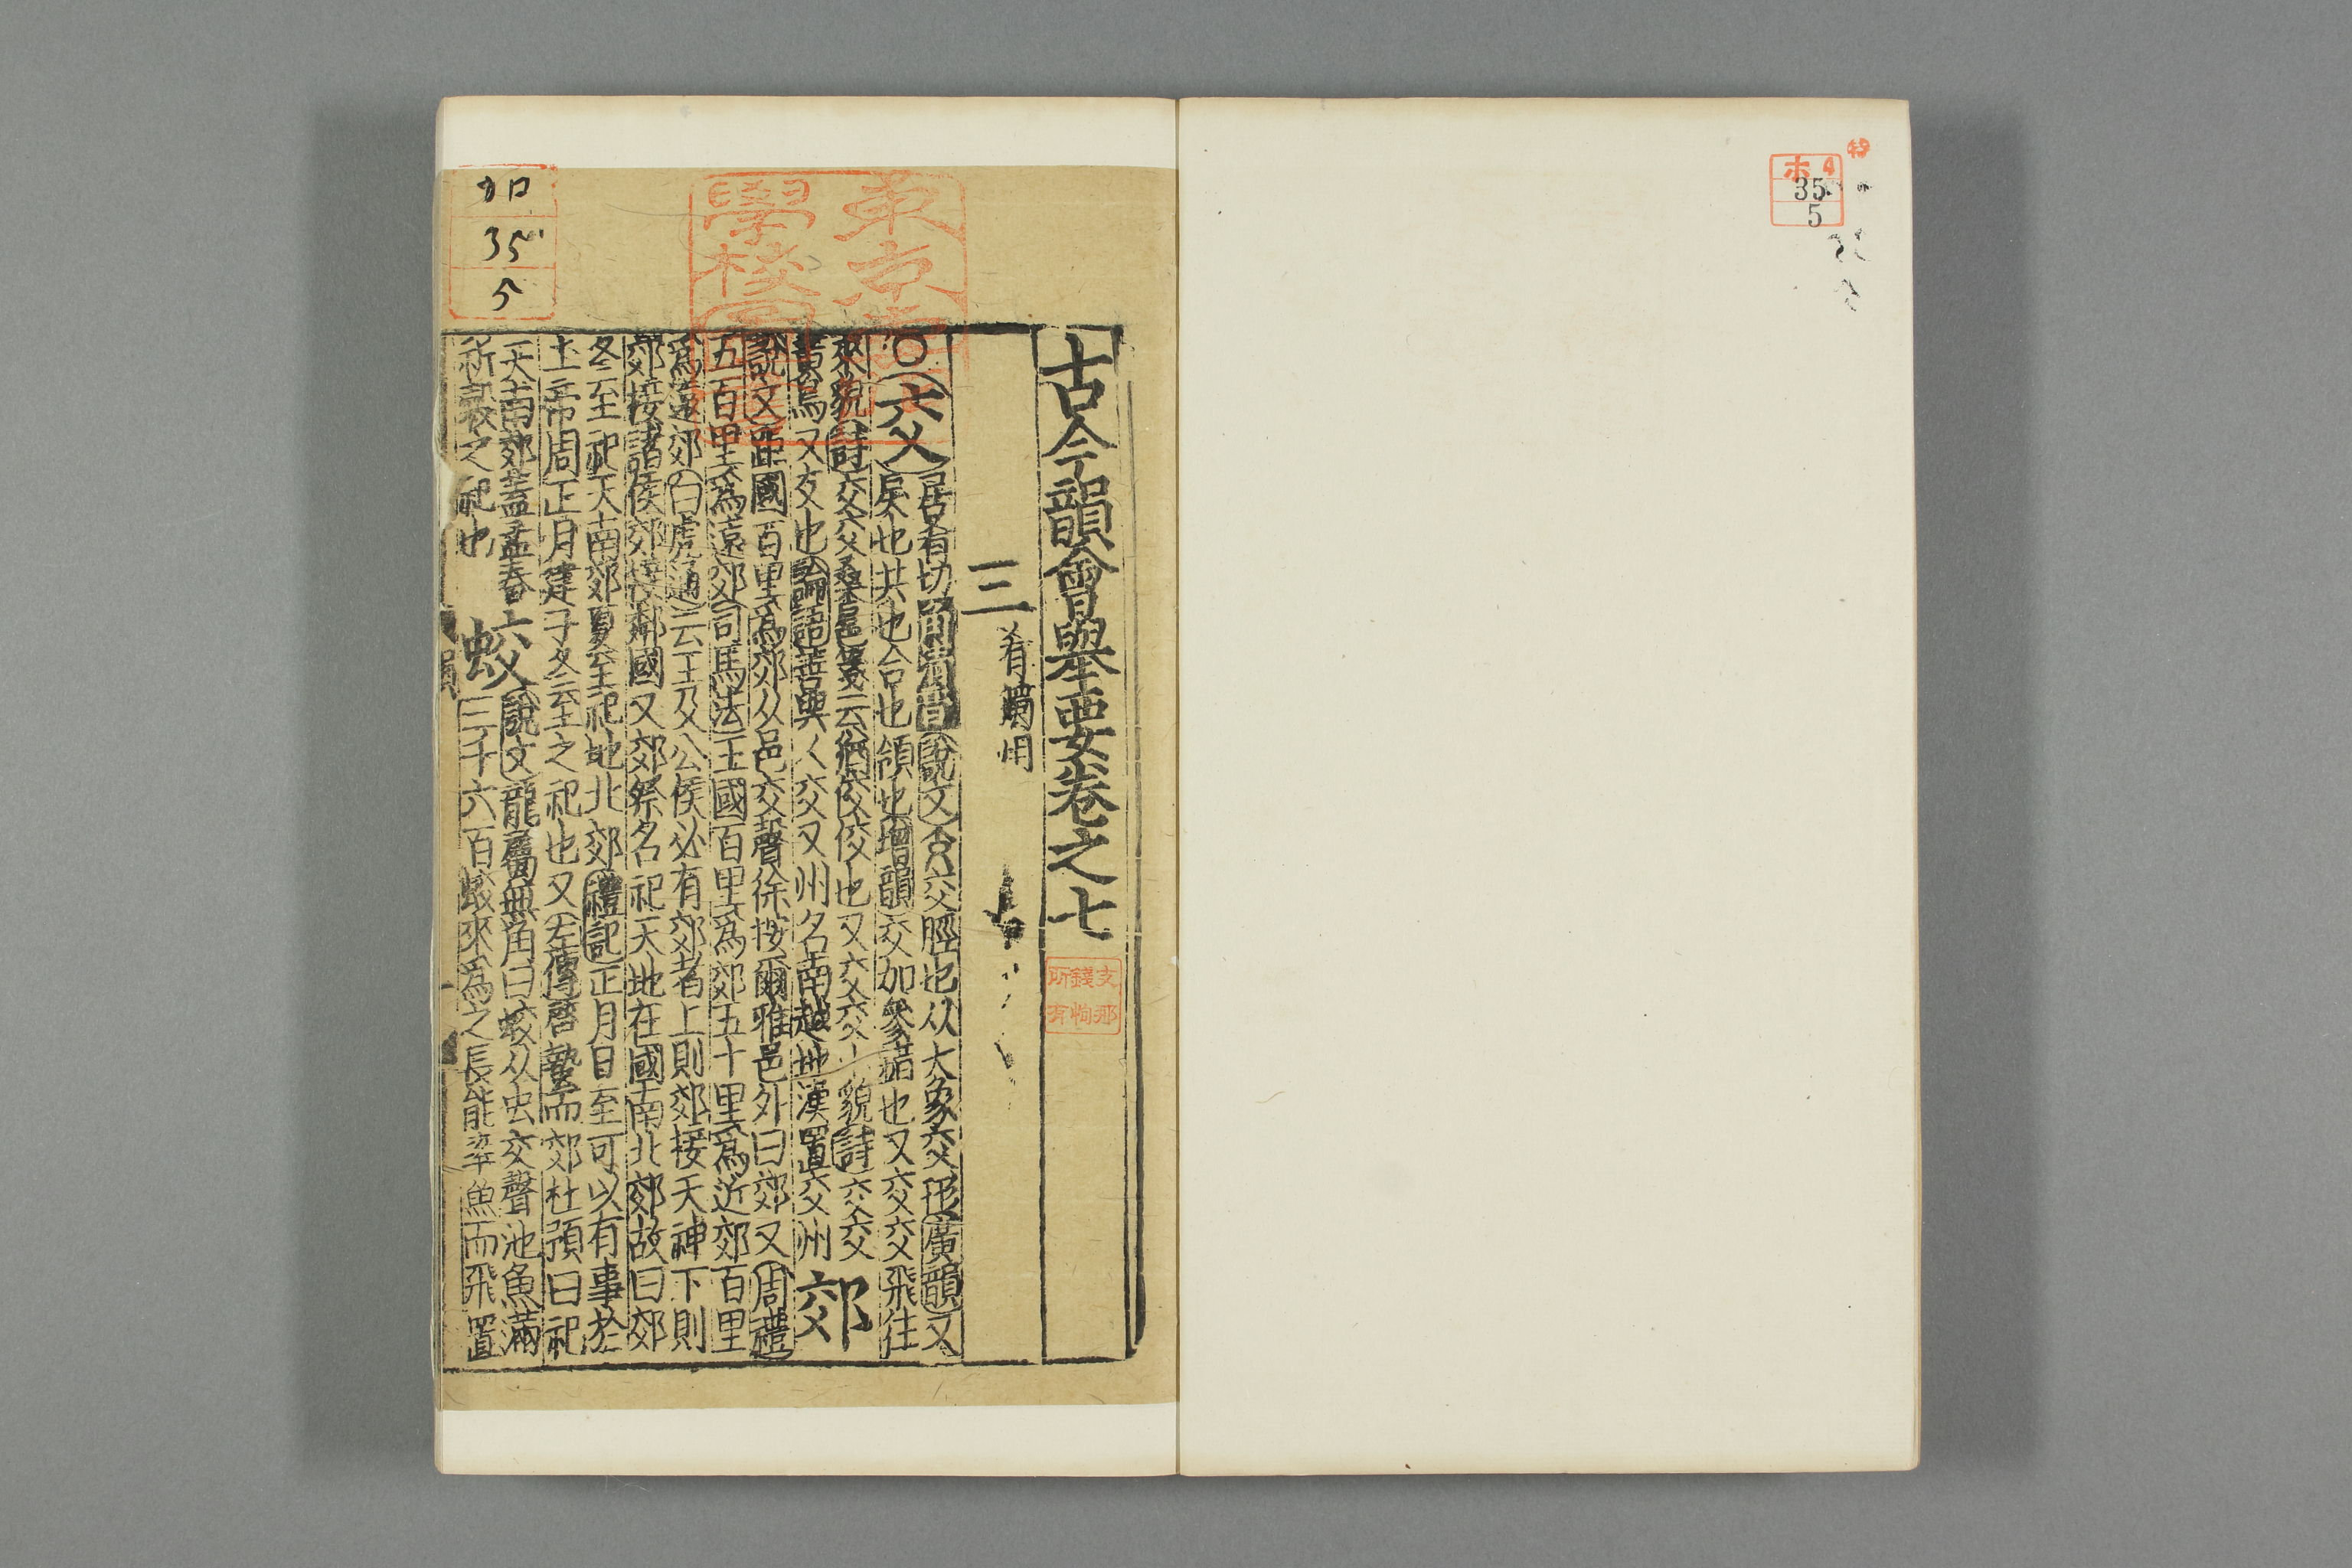 ホ 4
35
5
古今韻會舉要卷之七
支那
錢恂
所有
三
肴獨用
東京
學校
○交居肴切角清音說文交脛也从大象交形廣韻又
戾也共也合也領也增韻交加參錯也又交交飛往
來貌詩交交桑扈箋云猶佼佼也又交交小貌詩交交
黃鳥又友也論語善與人交又州名南越地漢置交州 郊
說文距國百里爲郊从邑交聲徐按爾雅邑外曰郊又周禮
五百里爲遠郊司馬法王國百里爲郊五十里爲近郊百里
爲遠郊白虎通云王及公侯必有郊者上則郊接天神下則
郊接諸侯郊接鄰國又郊祭名祀天地在國南北郊故曰郊
冬至祀天南郊夏至祀地北郊禮記正月日至可以有事於
上帝周正月建子冬至之祀也又左傳啓蟄而郊杜預曰祀
天南郊蓋孟春 蛟說文龍屬無角曰蛟从虫交聲池魚滿
祈穀之祀也 三千六百蛟來爲之長能率魚而飛置
加
35
5